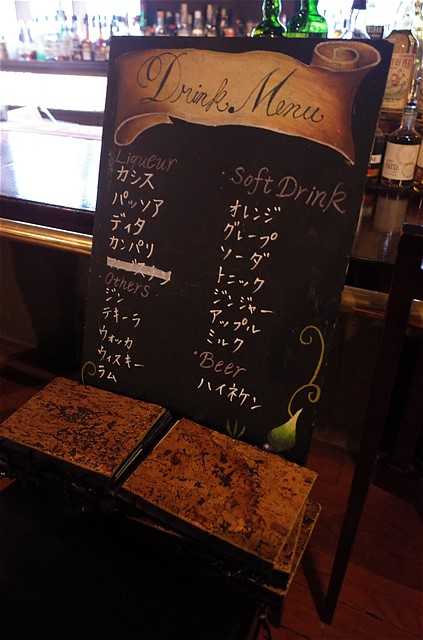 Drink Menu
Liqueur
カシス
パッソア
ディタ
カンパリ
Others
ジン
テキーラ
ウォッカ
ウィスキー
ラム
・Soft Drink
オレンジ
グレープ
ソーダ
トニック
ジンジャー
アップル
ミルク
・Beer
ハイネケン